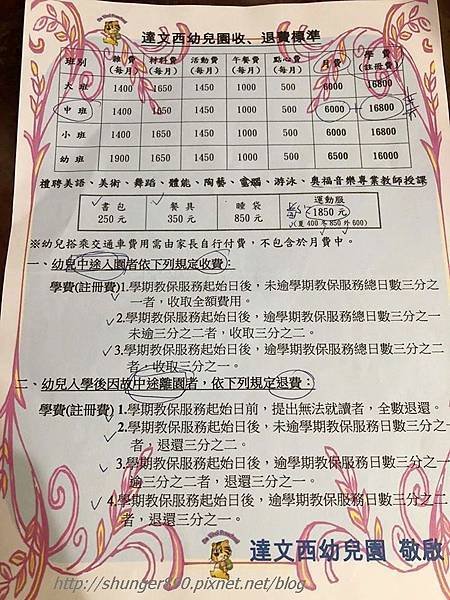 達文西幼兒園收、退費標準
班別 雜費(每月) 材料費(每月) 活動費(每月) 午餐費(每月) 點心費(每月) 月費 學費(註冊費)
大班 1400 1650 1450 1000 500 6000 16800
中班 1400 1650 1450 1000 500 6000 16800
小班 1400 1650 1450 1000 500 6000 16800
幼班 1900 1650 1450 1000 500 6500 16000
禮聘美語、美術、舞蹈、體能、陶藝、電腦、游泳、奧福音樂專業教師授課
書包 餐具 睡袋 運動服
250元 350元 850元 (1850元)
(夏400冬850外600)
※幼兒搭乘交通車費用需由家長自行付費,不包含於月費中。
一、幼兒中途入園者依下列規定收費:
學費(註冊費)1.學期教保服務起始日後,未逾學期教保服務總日數三分之
一者,收取全額費用。
2.學期教保服務起始日後,逾學期教保服務總日數三分之一
未逾三分之二者,收取三分之二。
3.學期教保服務起始日後,逾學期教保服務總日數三分之二
者,收取三分之一。
二、幼兒入學後因故中途離園者,依下列規定退費:
學費(註冊費)1.學期教保服務起始日前,提出無法就讀者,全數退還。
2.學期教保服務起始日後,未逾學期教保服務日數三分之一
者,退還三分之二。
3.學期教保服務起始日後,逾學期教保服務日數三分之一
逾三分之二者,退還三分之一。
4.學期教保服務起始日後,逾學期教保服務日數三分之二
者,退還三分之一。
達文西幼兒園 敬啟
http://shunger890.pixnet.net/blog